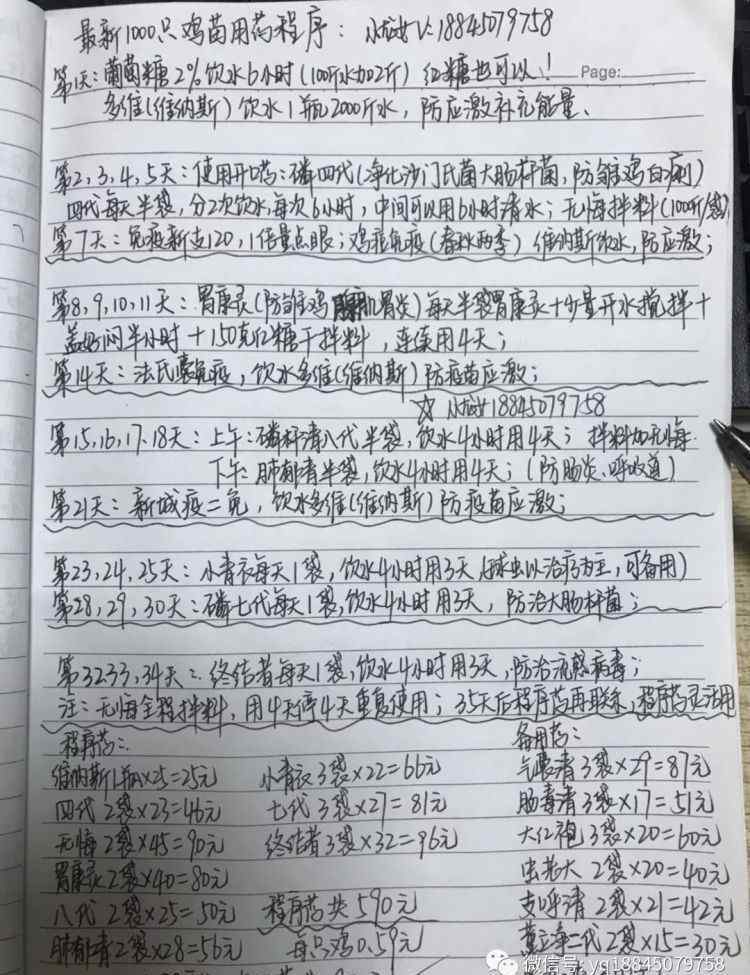 最新1000只鸡苗用药程序：小龙女V:18845079758
第1天：葡萄糖2%饮水6小时（100斤水加2斤）红糖也可以！
Page:
多维（维纳斯）饮水1瓶2000斤水，防应激补充能量、
第2,3,4,5天：使用开口药：磷四代（净化沙门氏菌大肠杆菌，防雏鸡白痢）
四代每天半袋，分2次饮水，每次6小时，中间可以用6小时清水；无悔拌料（100斤/袋）
第7天：免疫新支120，1倍量点眼；鸡痘免疫（春秋两季）维纳斯饮水，防应激；
第8,9,10,11天：胃康灵（防雏鸡腺肌胃炎）每天半袋胃康灵+少量开水搅拌+
盖好闷半小时+150克红糖干拌料，连续用4天；
第14天：法氏囊免疫，饮水多维（维纳斯）防疫苗应激；
☆小龙女18845079758
第15,16,17.18天：上午：磷杆清八代半袋，饮水4小时用4天；拌料加无悔
下午：肺郁青半袋，饮水4小时用4天；（防肠炎、呼吸道）
第21天：新城疫二免，饮水多维（维纳斯）防疫苗应激；
第23,24,25天：小青衣每天1袋，饮水4小时用3天（球虫以治疗为主，可备用）
第28,29,30天：磷七代每天1袋，饮水4小时用3天，防治大肠杆菌；
第32 33,34天：终结者每天1袋，饮水4小时用3天，防治流感病毒；
注：无悔全程拌料，用4天停4天重复使用；35天后程序药再联系，程序药灵活用
程序药： 备用药：
维纳斯1瓶×25=25元 小青衣3袋×22=66元 气囊清3袋×29=87元
四代2袋×23=46元 七代3袋×27=81元 肠毒清3袋×17=51元
无悔2袋×45=90元 终结者3袋×32=96元 大红袍3袋×20=60元
胃康灵2袋×40=80元 虫老大2袋×20=40元
八代2袋×25=50元 程序药共590元 支呼清2袋×21=42元
肺郁青2袋×28=56元 每只鸡0.59元 黄立净二代2袋×15=30元
微信号：yq18845079758